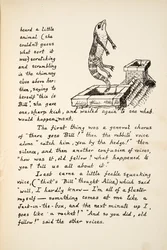 heard a little
animal (she
couldn't guess
what sort it
was) scratching
and scrambling
in the chimney
close above her:
then, saying to
herself "this is
Bill," she gave
one sharp kick, and waited again to see what
would happen next.
The first thing was a general chorus
of "there goes Bill!" then the rabbit's voice
alone "catch him, you by the hedge!" then
silence, and then another confusion of voices,
"how was it, old fellow? what happened to
you? tell us all about it."
Last came a little feeble squeaking
voice, ("that's Bill" thought Alice,) which said
"well, I hardly know— I'm all of a fluster
myself— something comes at me like a
Jack-in-the-box, and the next minute up I
goes like a rocket!" "And so you did, old
fellow!" said the other voices.